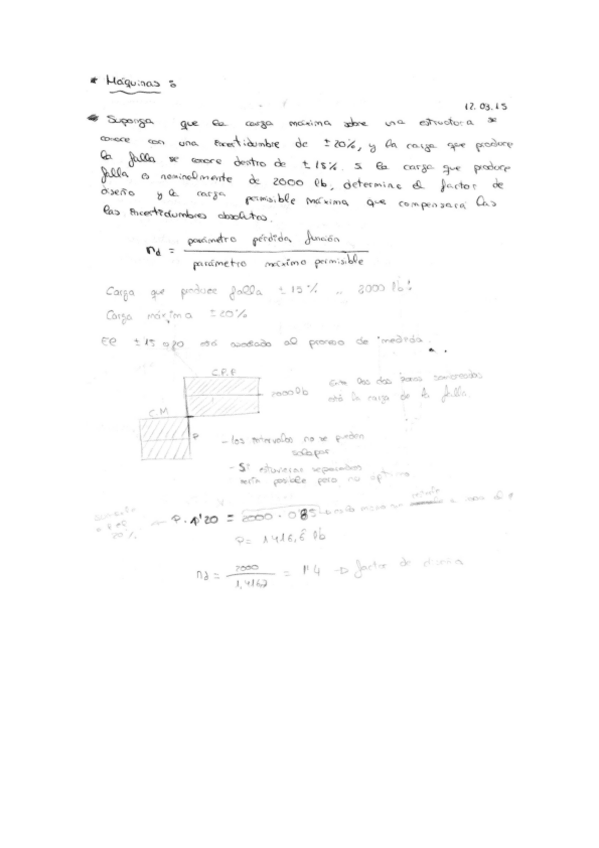 * Máquinas :
12.03.15
Suponga que la carga máxima sobre una estructura se
conoce con una incertidumbre de ±20%, y la carga que produce
la falla se conoce dentro de ±15%. Si la carga que produce
falla es nominalmente de 2000 lb, determine el factor de
diseño y la carga permisible máxima que compensará las
las incertidumbres absolutas.
nd = parámetro pérdida función
parámetro máximo permisible
Carga que produce falla ±15% 2000 lb
Carga máxima ±20%
El ±15 o 20 está asociado al proceso de medida.
C.P.F
2000 lb
Entre las dos zonas sombreadas
está la carga de la falla.
C.M
P
- los intervalos no se pueden
solapar
- Si estuvieran separados
sería posible pero no óptimo
20%
P. 1'20 = 2000 . 0'85
P = 1416,6 lb
nd = 2000 / 1,4167 = 1'4 → factor de diseño